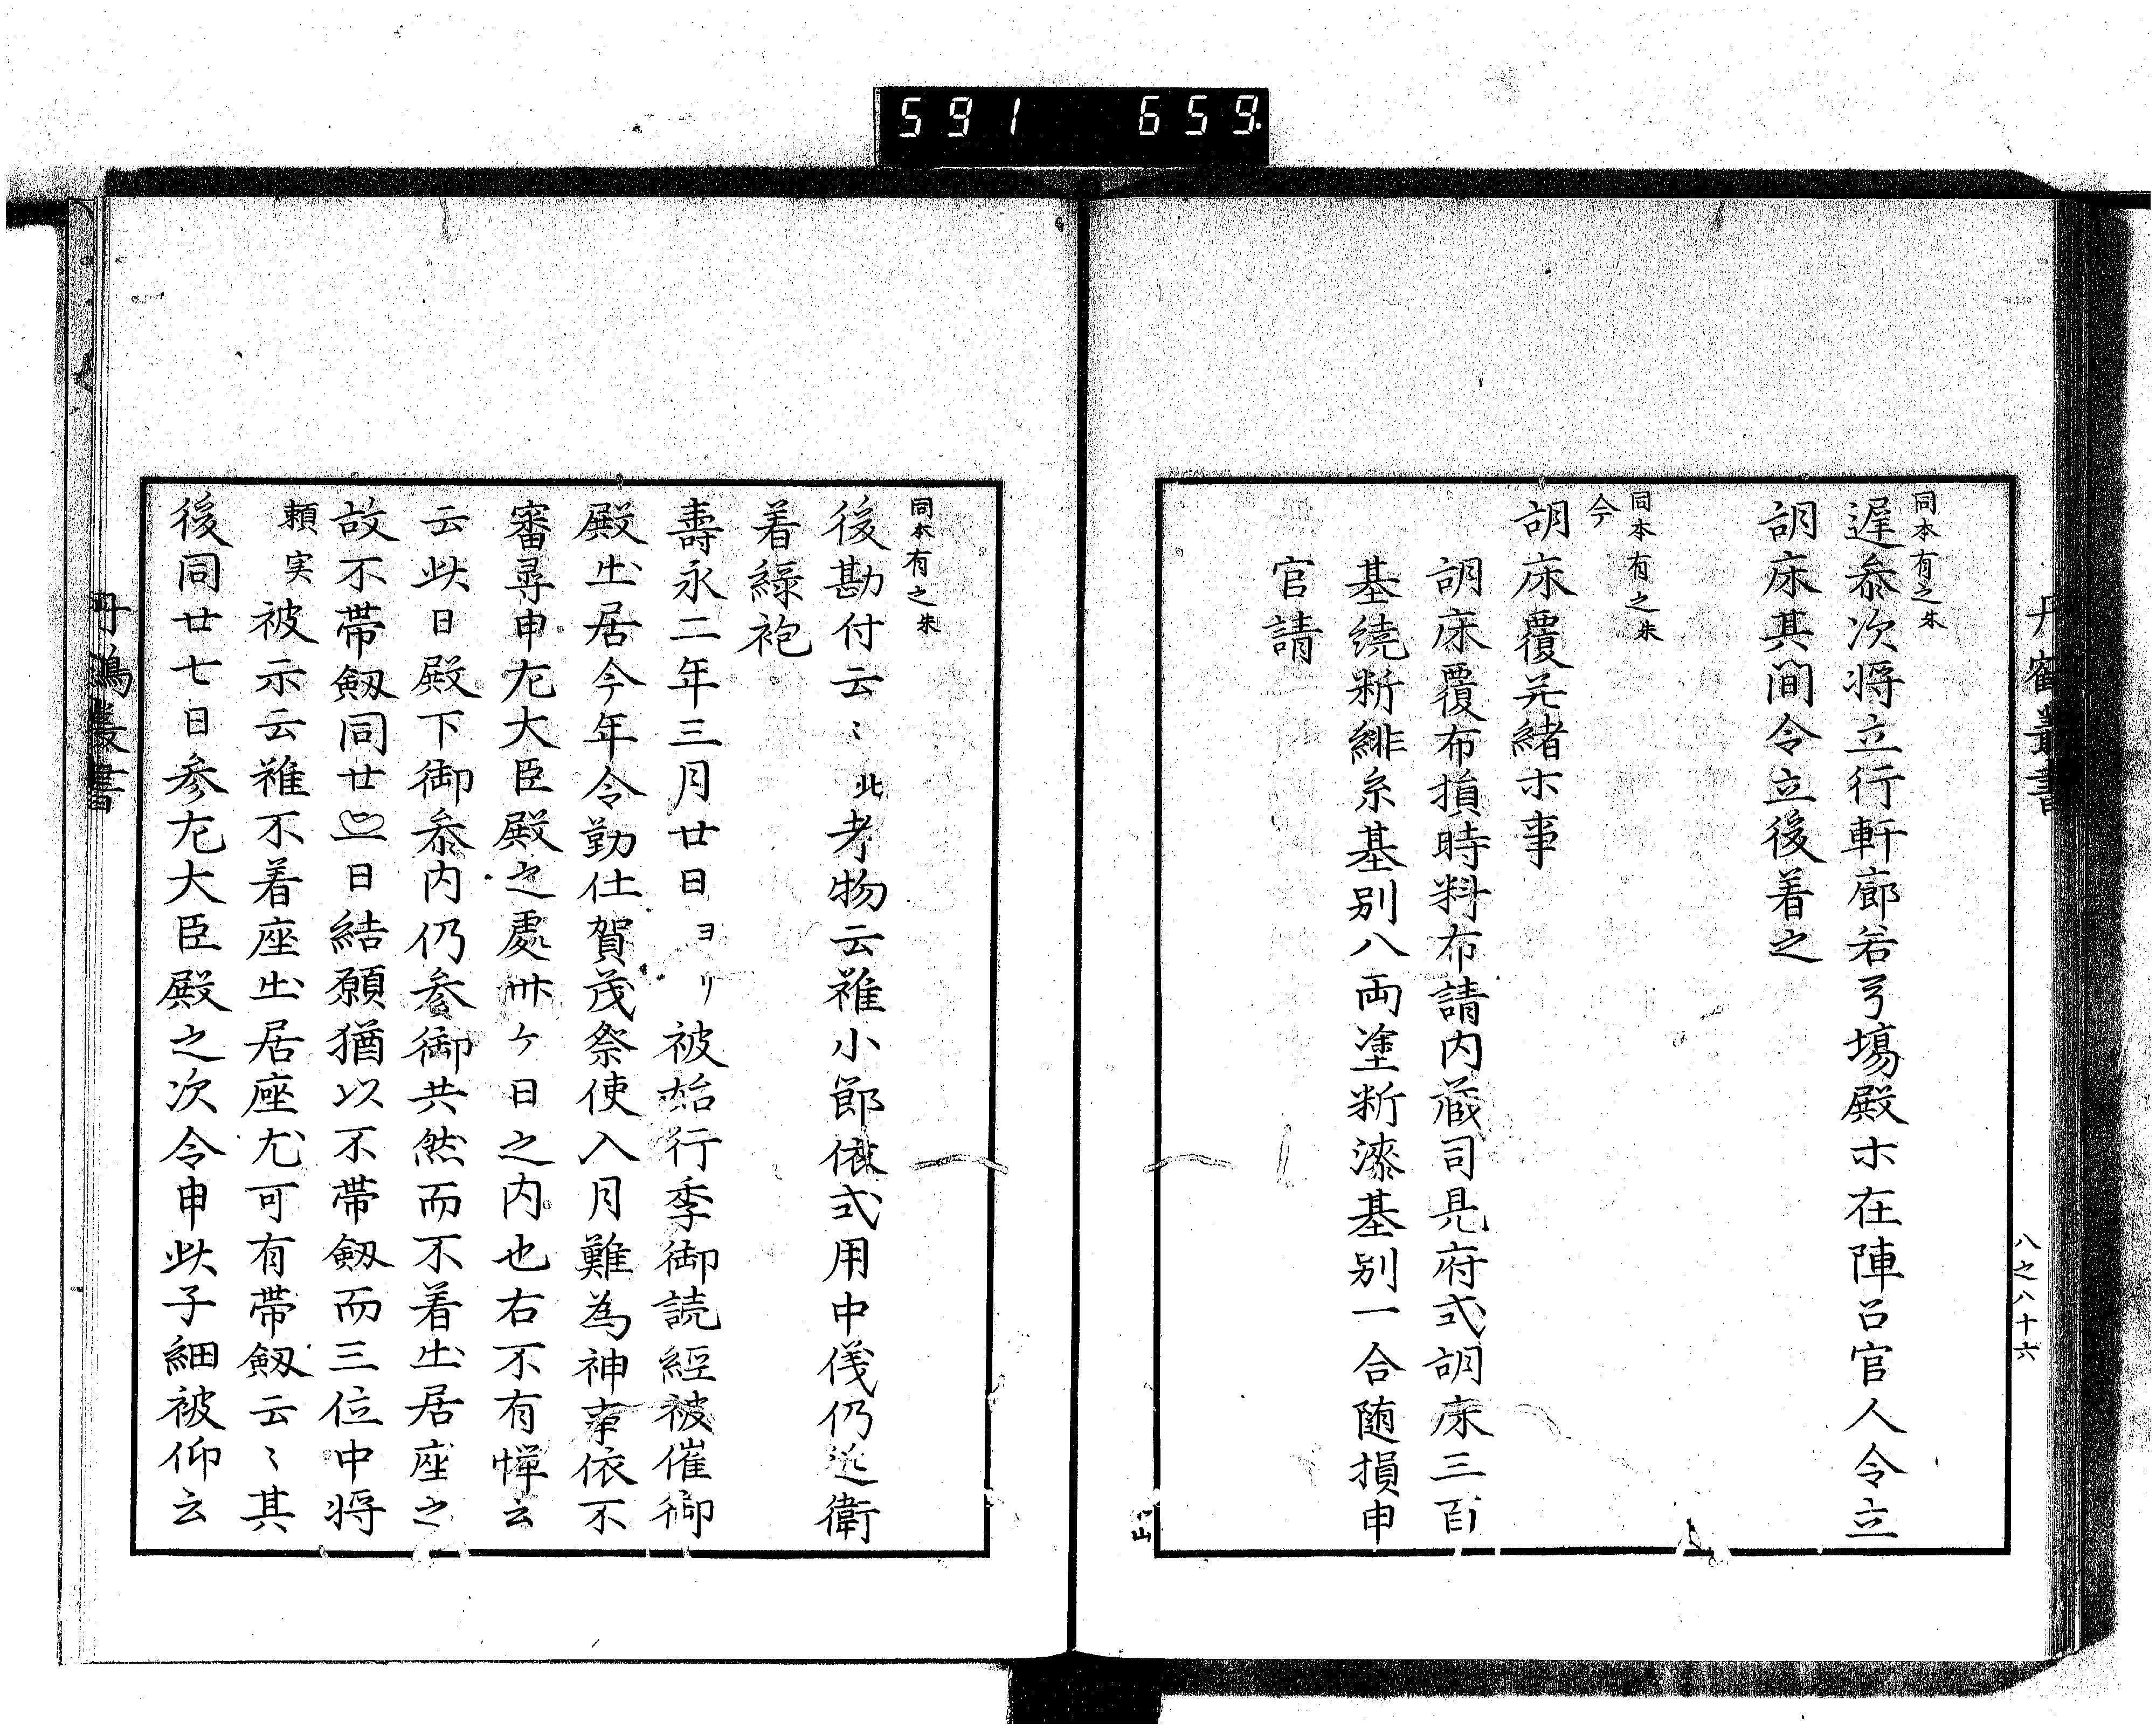 591 659.
丹鶴叢書
八之八十六
同本有之朱
遅参次将立行軒廊若弓場殿ホ在陣召官人令立
胡床其間令立後着之
同本有之朱
今
胡床覆并緒ホ事
胡床覆布損時料布請内蔵司見府式胡床三百
基繞断緋糸基別八両塗断漆基別一合随損申
官請
同本有之朱
後勘付云〻此考物云雖小節依式用中儀仍近衛
着緑袍
壽永二年三月廿日ヨリ被始行季御読經被催御
殿出居今年令勤仕賀茂祭使入月難為神事依不
審尋申左大臣殿之處卅ケ日之内也右不有憚云
云此日殿下御参内仍参御共然而不着出居座之
故不帯劔同廿二日結願猶以不帯劔而三位中将
頼実被示云雖不着座出居座尤可有帯劔云〻其
後同廿七日参左大臣殿之次令申此子細被仰云
丹鶴叢書